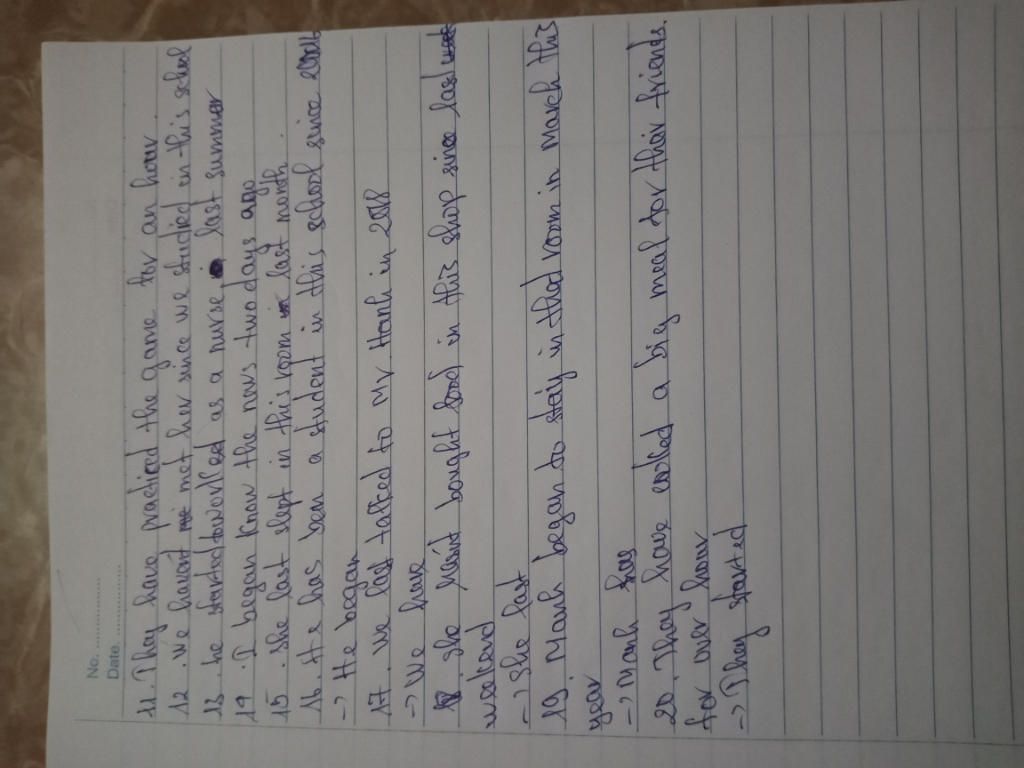 No. ..............
Date. ..............
11. They have practiced the game for an hour
12. we haven't met her since we studied in this school
13. he started worked as a nurse last summer
14. I began know the news two days ago
15. She last slept in this room last month
16. He has been a student in this school since 2016
-> He began
17. We last talked to Mr Hanh in 2018
-> We have
18. she hasn't bought food in this shop since last
weekend
-> She last
19. Manh began to stay in that room in march this
year
-> Manh has
20. They have cooked a big meal for their friends
for over hour
-> They started